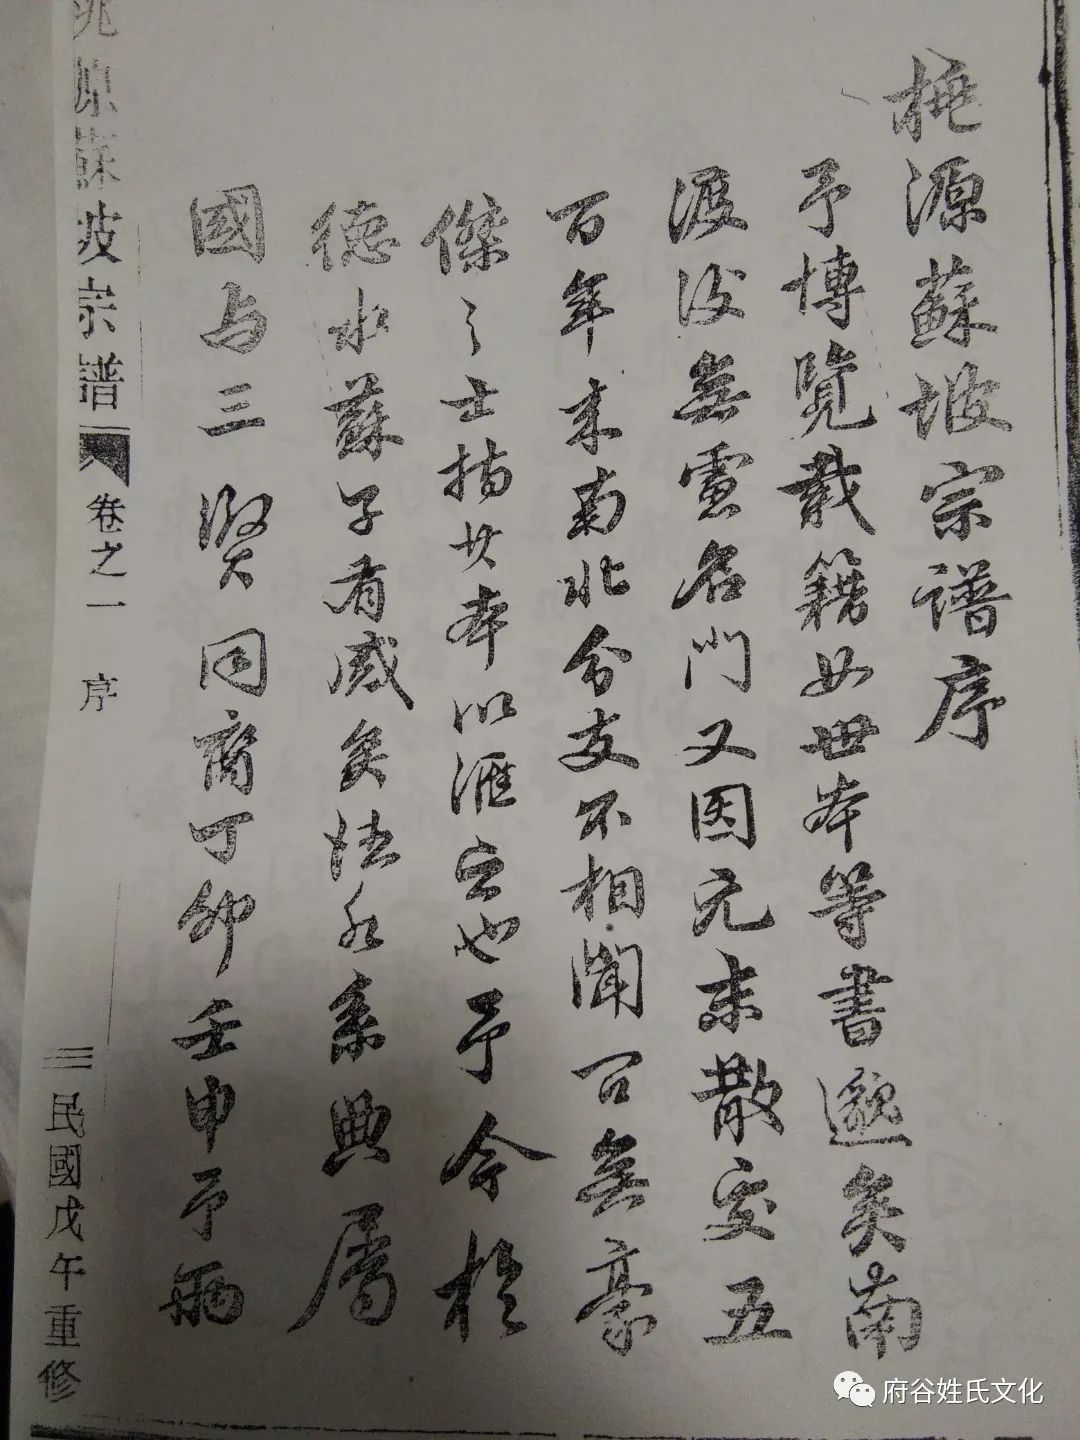 桃源蘇坡宗譜序
予博覽載籍如世本等書邈矣南
渡後無處名門又因元末散交五
百年来南北分支不相聞可無豪
傑之士指其本以滙宗也予今於
德水蘇子有感矣恬系典屬
國与三賢同裔丁卯壬申予兩
桃原蘇坡宗譜
卷之一 序
民國戊午重修
府谷姓氏文化